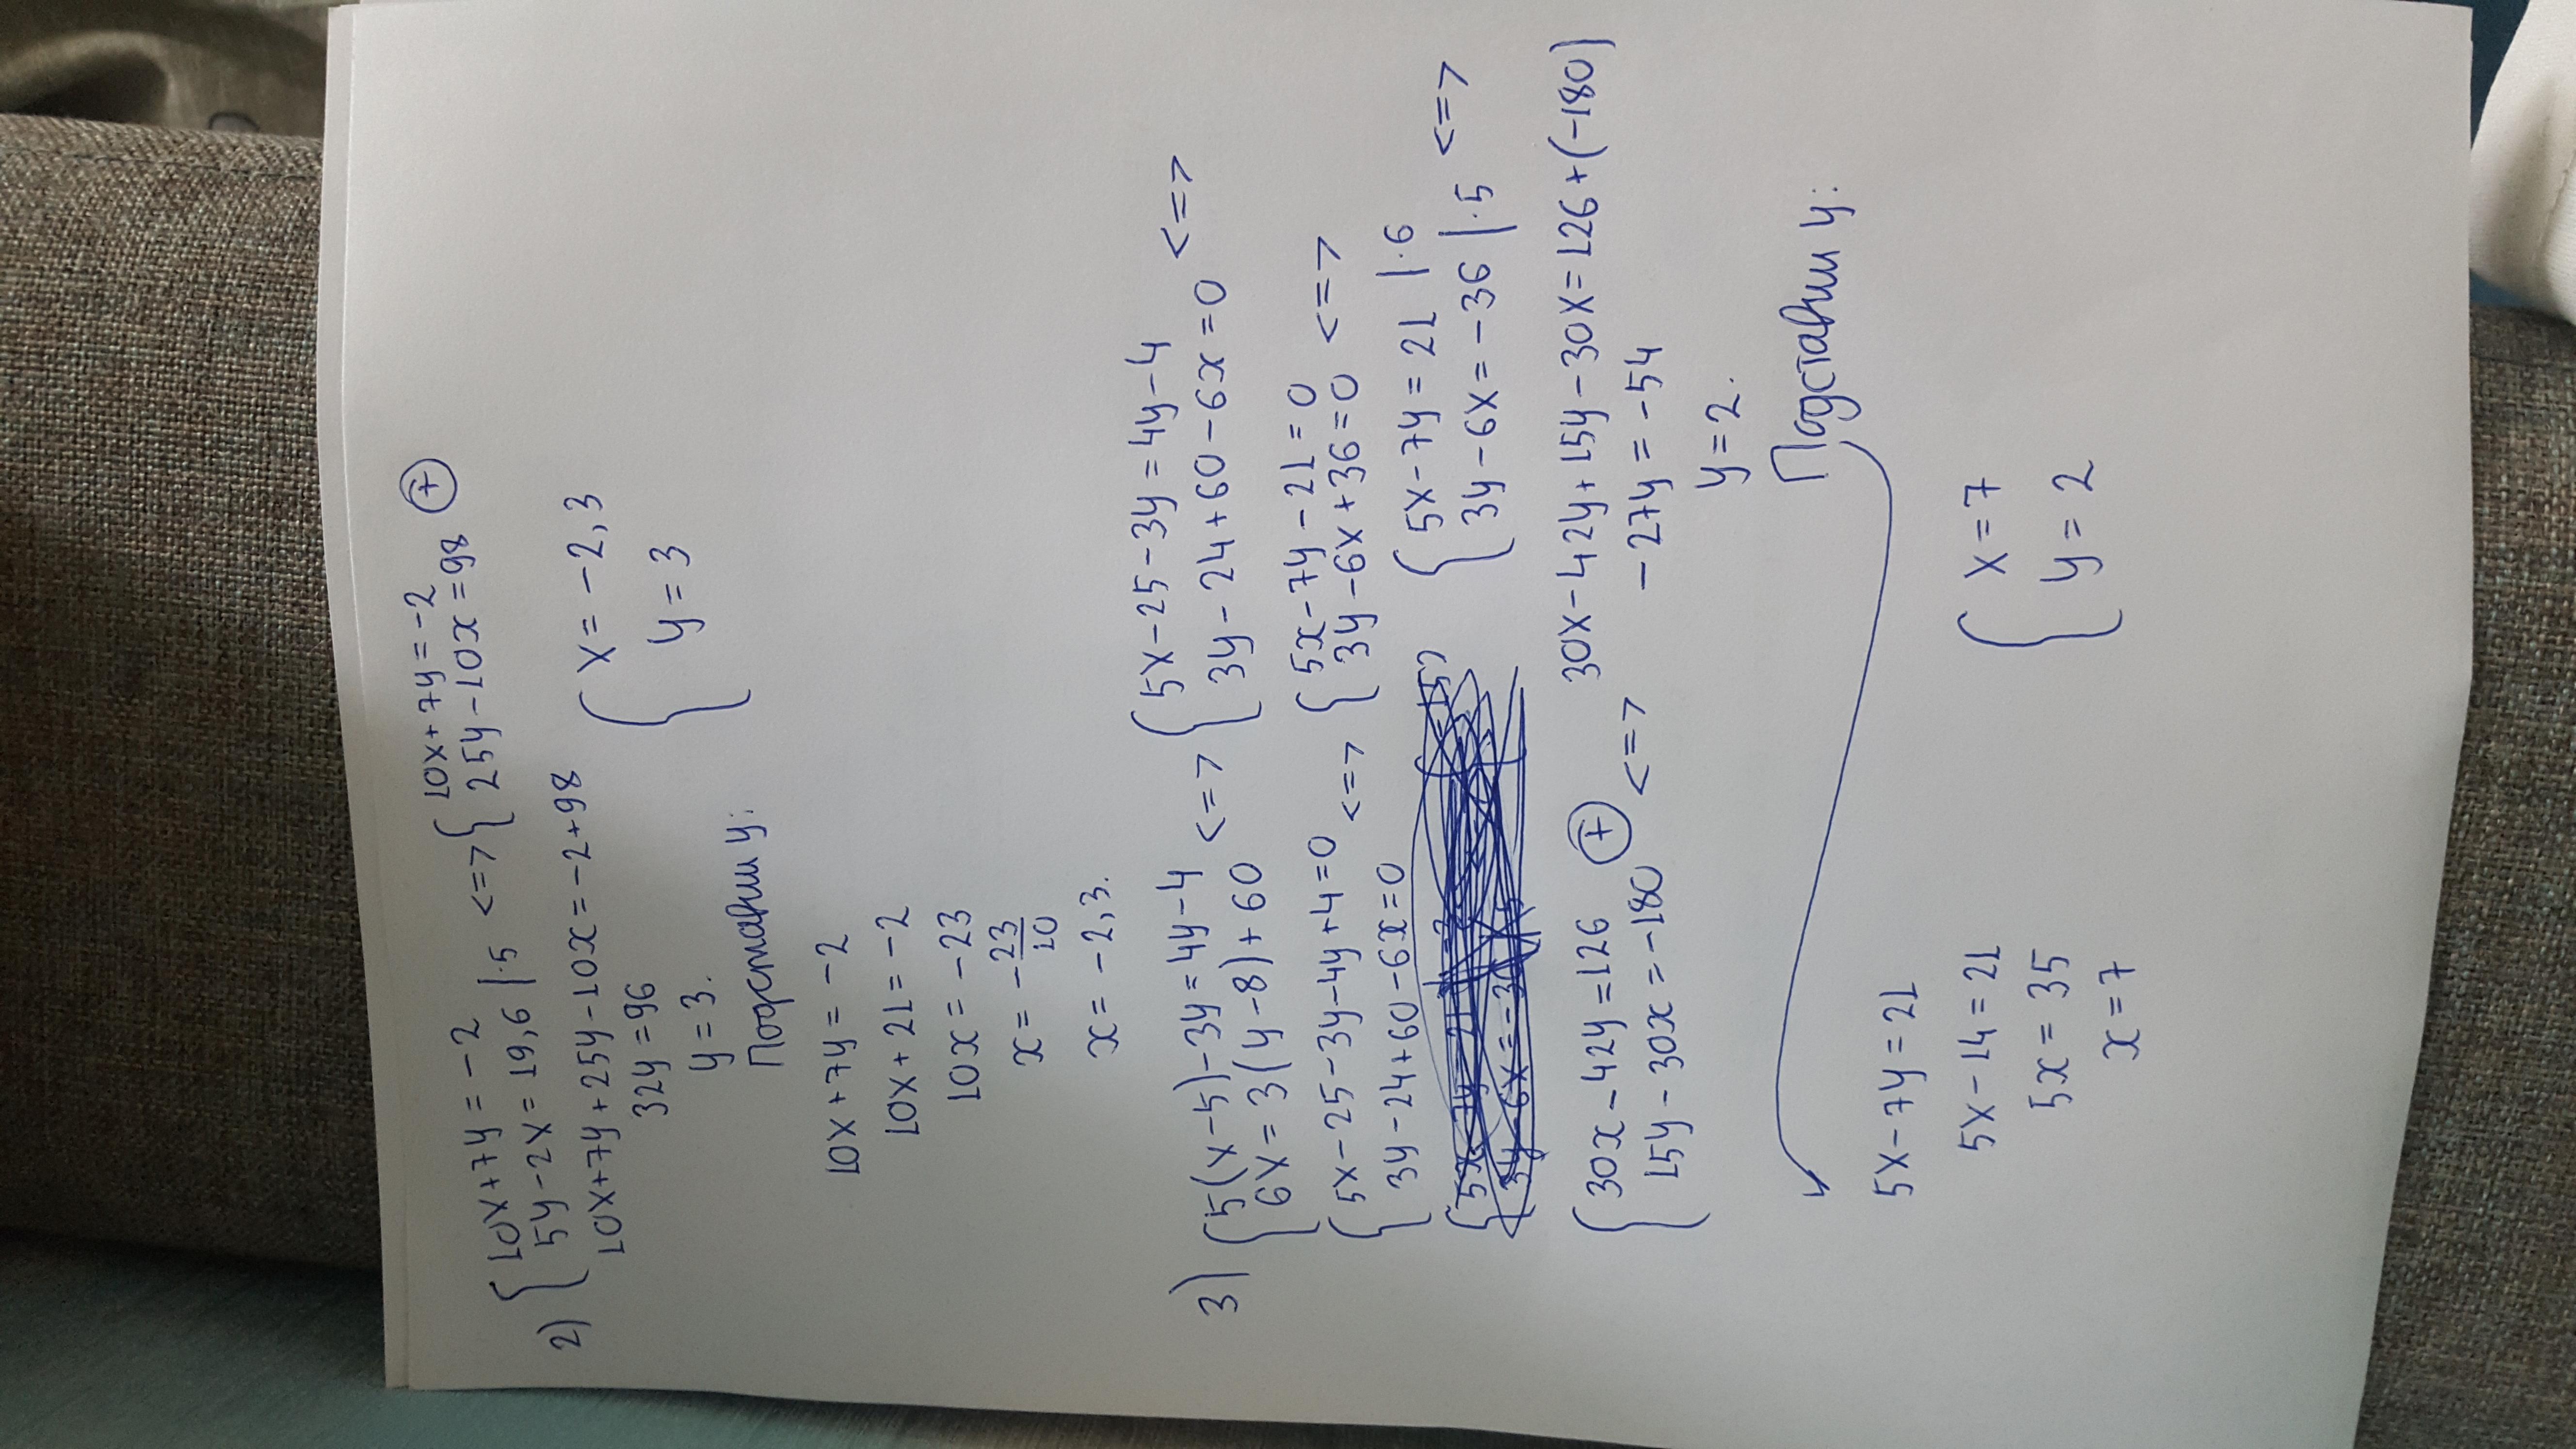 2) { 10x+7y=-2
5y-2x=19,6 |·5 <=> { 10x+7y=-2
25y-10x=98 (+)
10x+7y+25y-10x=-2+98
32y=96
y=3.
{ x=-2,3
y=3
Подставим y:
10x+7y=-2
10x+21=-2
10x=-23
x=-23/10
x=-2,3.
3) { 5(x-5)-3y=4y-4
6x=3(y-8)+60 <=> { 5x-25-3y=4y-4
3y-24+60-6x=0 <=>
{ 5x-25-3y-4y+4=0
3y-24+60-6x=0 <=> { 5x-7y-21=0
3y-6x+36=0 <=>
{ 5x-7y=21 |·6
3y-6x=-36 |·5 <=>
{ 30x-42y=126
15y-30x=-180 (+) <=>
30x-42y+15y-30x=126+(-180)
-27y=-54
y=2.
Подставим y:
5x-7y=21
5x-14=21
5x=35
x=7
{ x=7
y=2